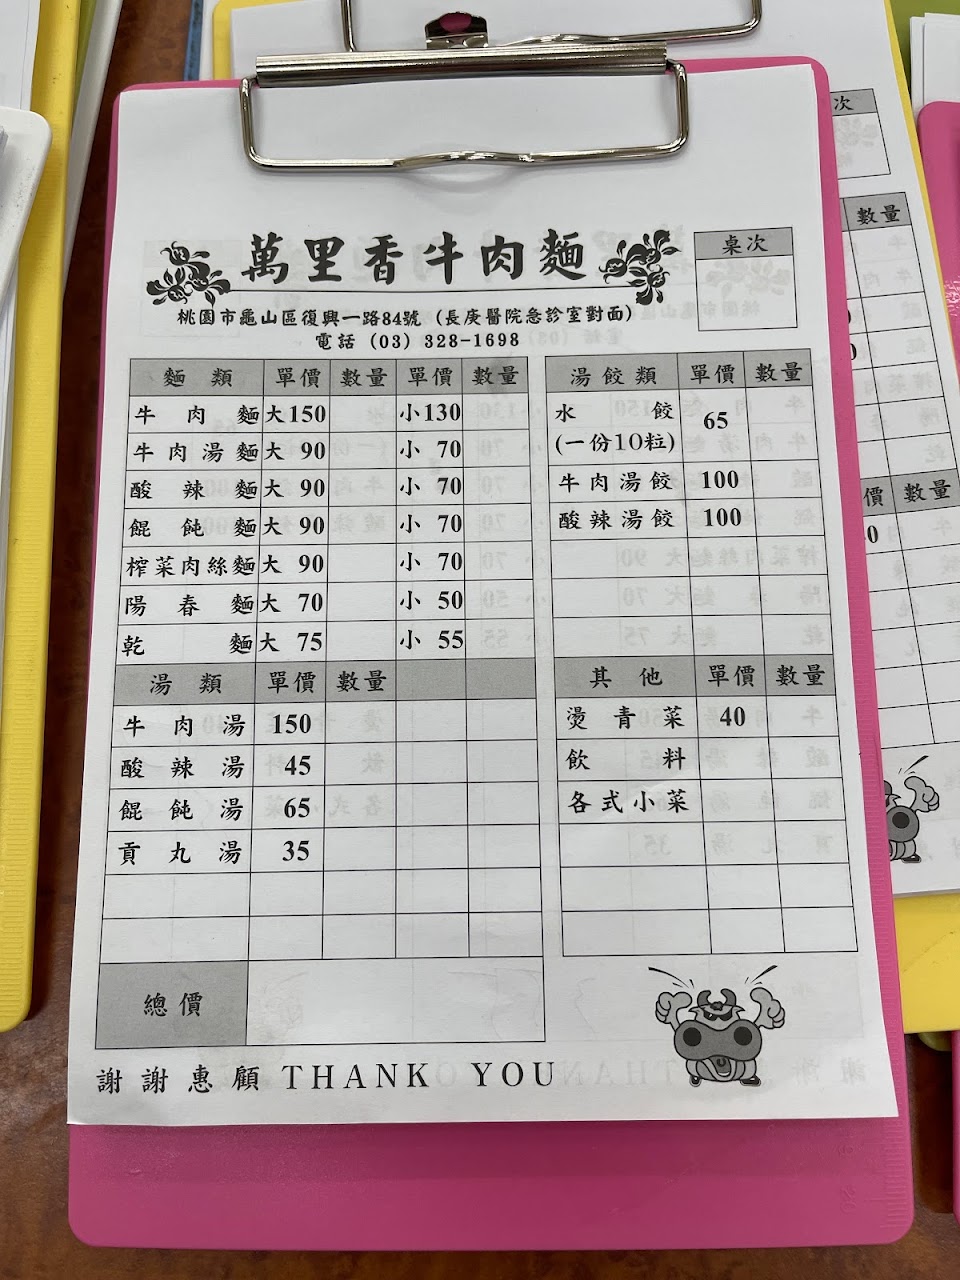 萬里香牛肉麵
桌次
桃園市龜山區復興一路84號 (長庚醫院急診室對面)
電話 (03) 328-1698
麵類 單價 數量 單價 數量
牛肉麵 大150 小130
牛肉湯麵 大 90 小 70
酸辣麵 大 90 小 70
餛飩麵 大 90 小 70
榨菜肉絲麵 大 90 小 70
陽春麵 大 70 小 50
乾麵 大 75 小 55
湯類 單價 數量
牛肉湯 150
酸辣湯 45
餛飩湯 65
貢丸湯 35
總價
湯餃類 單價 數量
水餃 65
(一份10粒)
牛肉湯餃 100
酸辣湯餃 100
其他 單價 數量
燙青菜 40
飲料
各式小菜
謝謝惠顧 THANK YOU
次
數量
價 數量